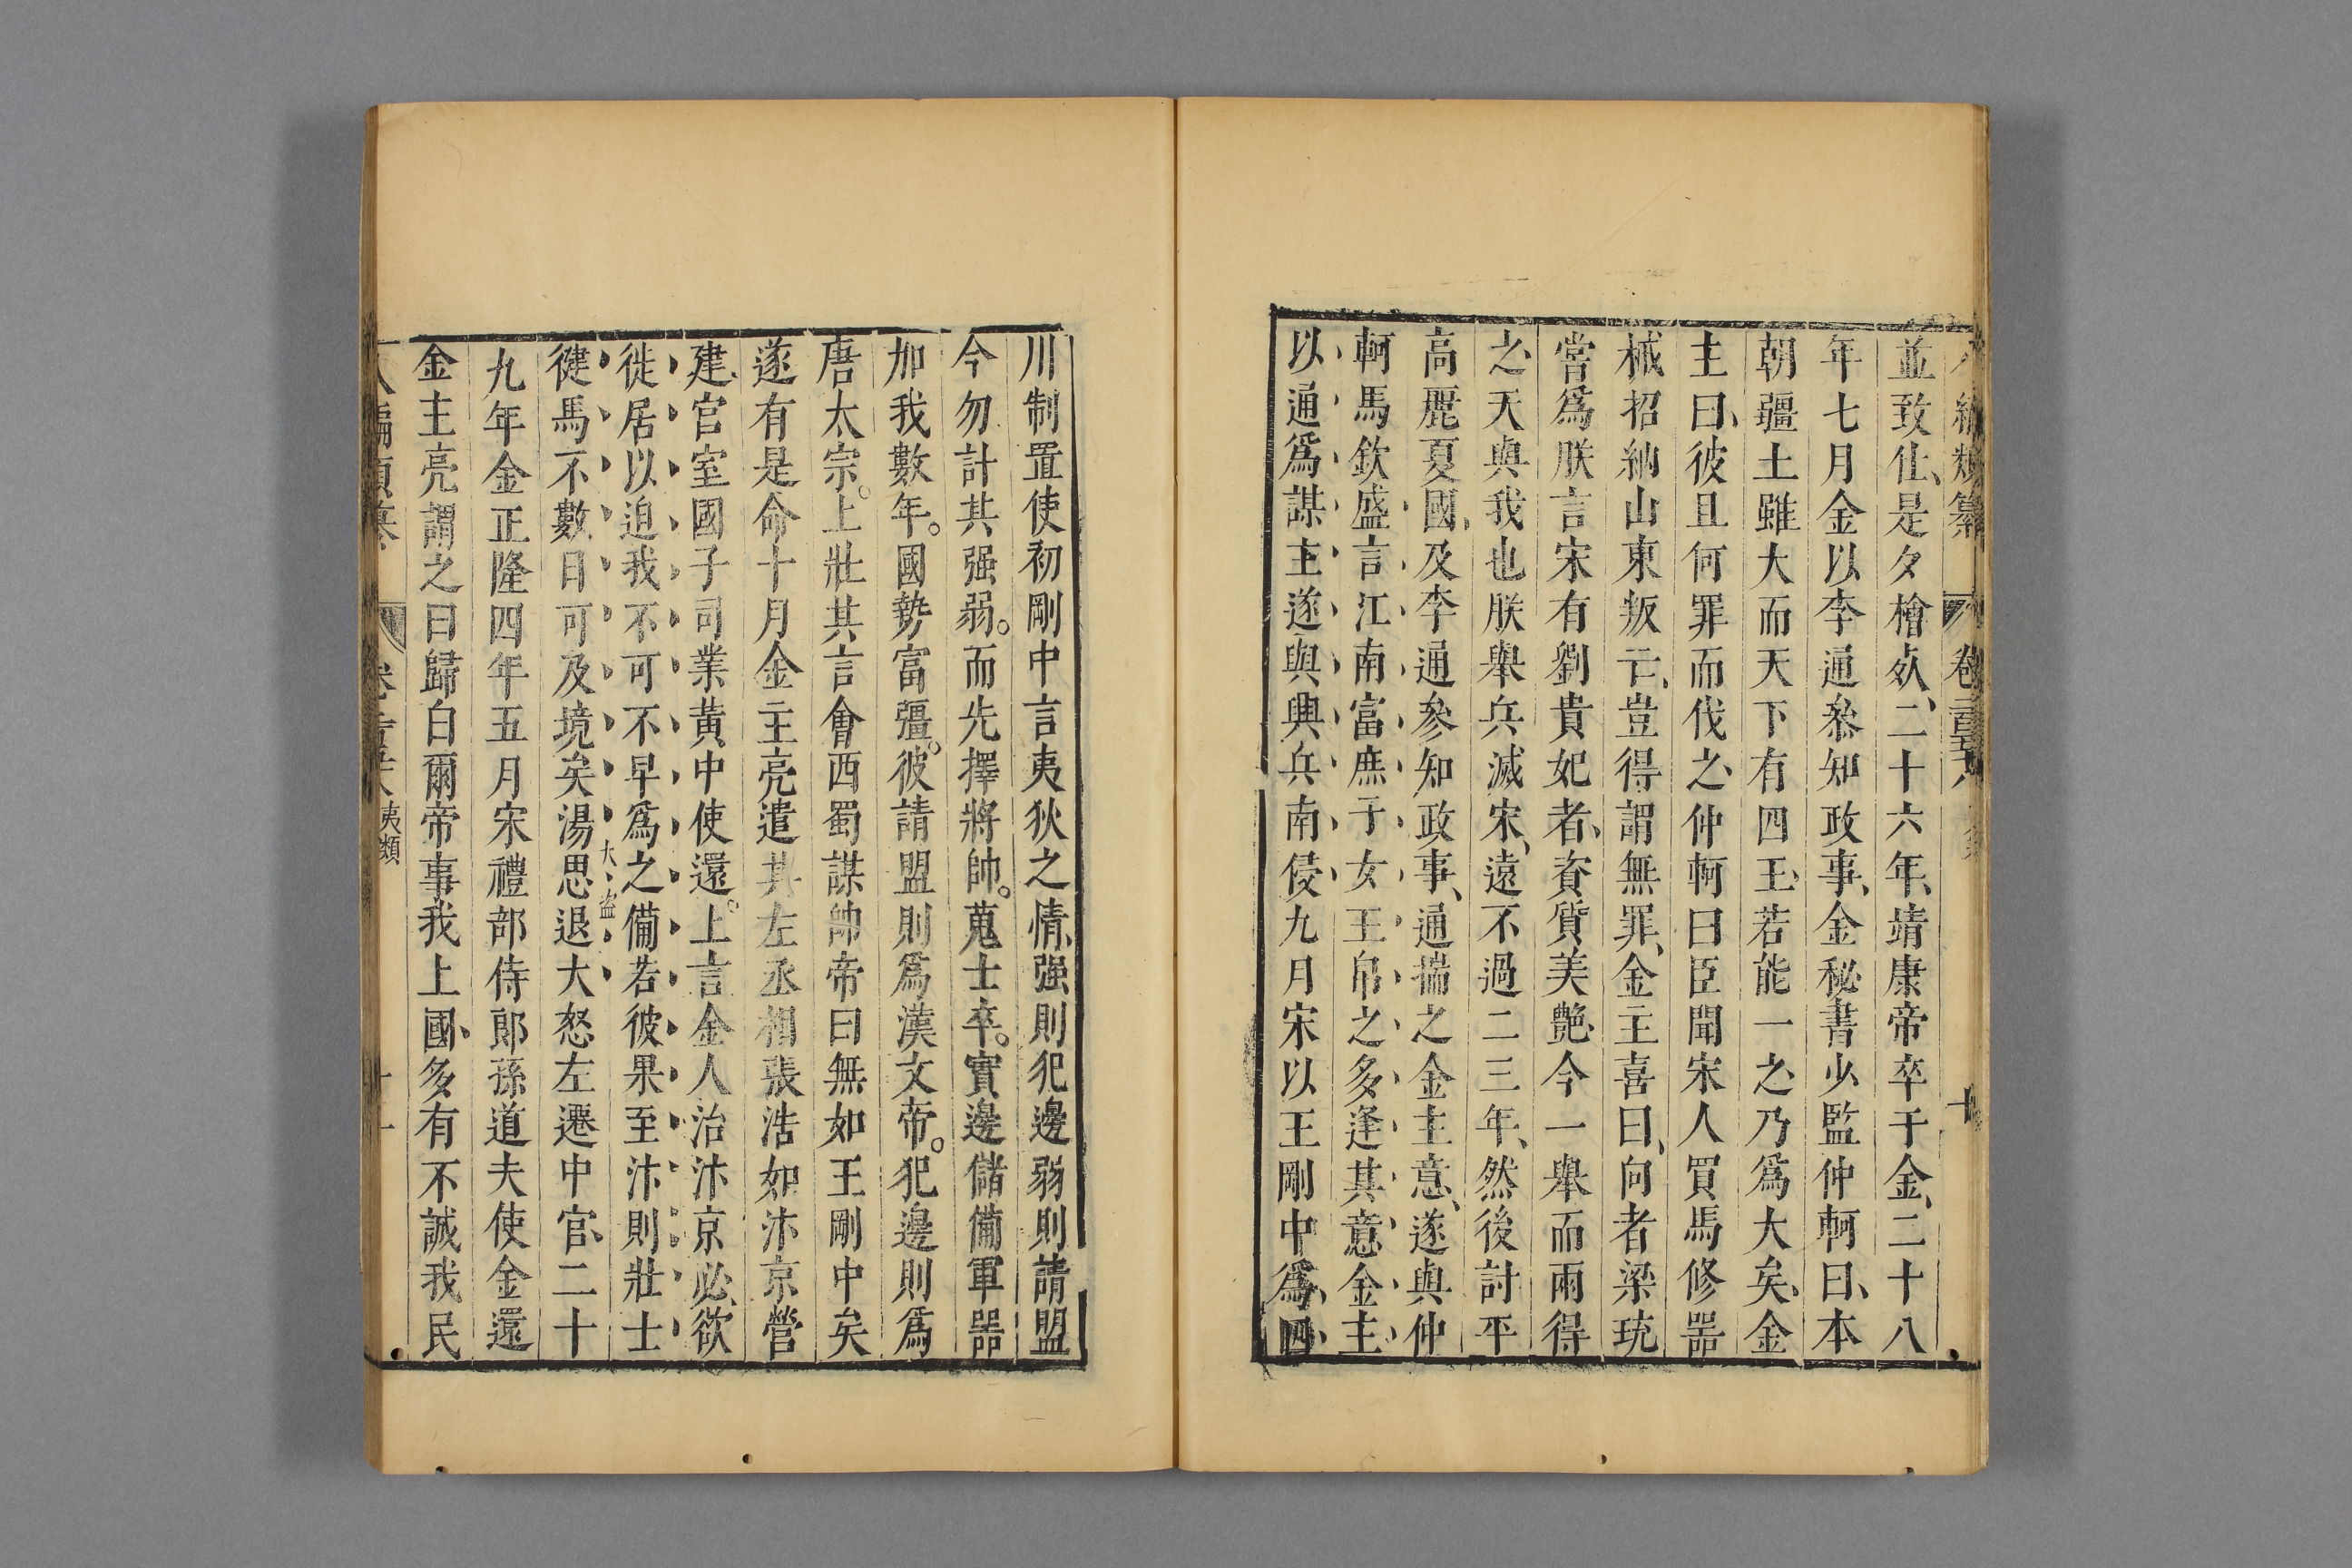 編類纂 卷二百 十
並致仕、是夕檜死、二十六年、靖康帝卒于金、二十八
年七月金以李通叅知政事、金秘書少監仲軻曰、本
朝疆土雖大而天下有四王、若能一之、乃爲大矣、金
主曰、彼且何罪而伐之、仲軻曰臣聞宋人買馬修器
械招納山東叛亡、豈得謂無罪、金主喜曰、向者梁珫
嘗爲朕言宋有劉貴妃者、資質美艷、今一舉而兩得
之、天與我也朕舉兵滅宋、遠不過二三年、然後討平
高麗夏國、及李通參知政事、通揣之金主意、遂與仲
軻馬欽盛言江南富庶子女王帛之多逢其意金主
以通爲謀主遂與興兵南侵九月宋以王剛中爲四
川制置使初剛中言夷狄之情、强則犯邊弱則請盟
今勿計其强弱。而先擇將帥。蒐士卒。實邊儲備軍器
加我數年。國勢富彊。彼請盟則爲漢文帝。犯邊則爲
唐太宗。上壯其言會西蜀謀帥帝曰無如王剛中矣
遂有是命十月金主亮遣其左丞相張浩如汴京營
建宮室國子司業黃中使還。上言金人治汴京必欲
徙居以迫我不可不早爲之備若彼果至汴則壯士
健馬不數日可及境矣湯思退大怒左遷中官、二十
大盜
九年金正隆四年五月宋禮部侍郎孫道夫使金還
金主亮謂之曰歸白爾帝事我上國、多有不誠我民
夷類 十一